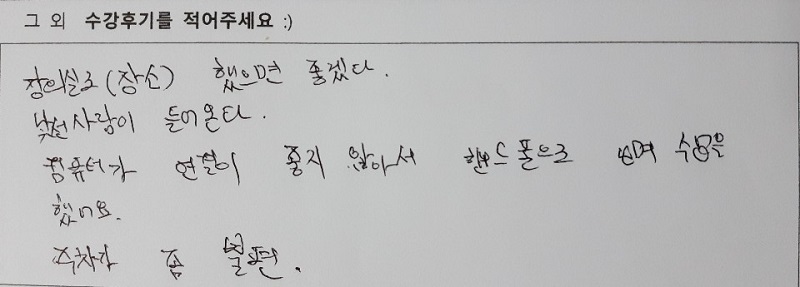 그 외 수강후기를 적어주세요 :)
강의실로(장소) 했으면 좋겠다.
낯선사람이 들어온다.
컴퓨터가 연결이 좋지 않아서 핸드폰으로 보며 수업을
했어요.
주차가 좀 불편.